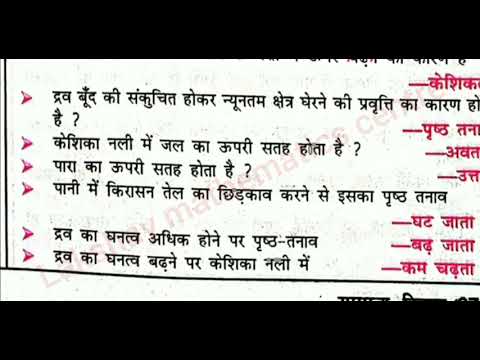 —केशिकत
➤ द्रव बूँद की संकुचित होकर न्यूनतम क्षेत्र घेरने की प्रवृत्ति का कारण हो
है ?
—पृष्ठ तना
➤ केशिका नली में जल का ऊपरी सतह होता है ? —अवत
➤ पारा का ऊपरी सतह होता है ? —उत्त
➤ पानी में किरासन तेल का छिड़काव करने से इसका पृष्ठ तनाव
—घट जाता
➤ द्रव का घनत्व अधिक होने पर पृष्ठ-तनाव —बढ़ जाता
➤ द्रव का घनत्व बढ़ने पर केशिका नली में —कम चढ़ता
mathematics centre